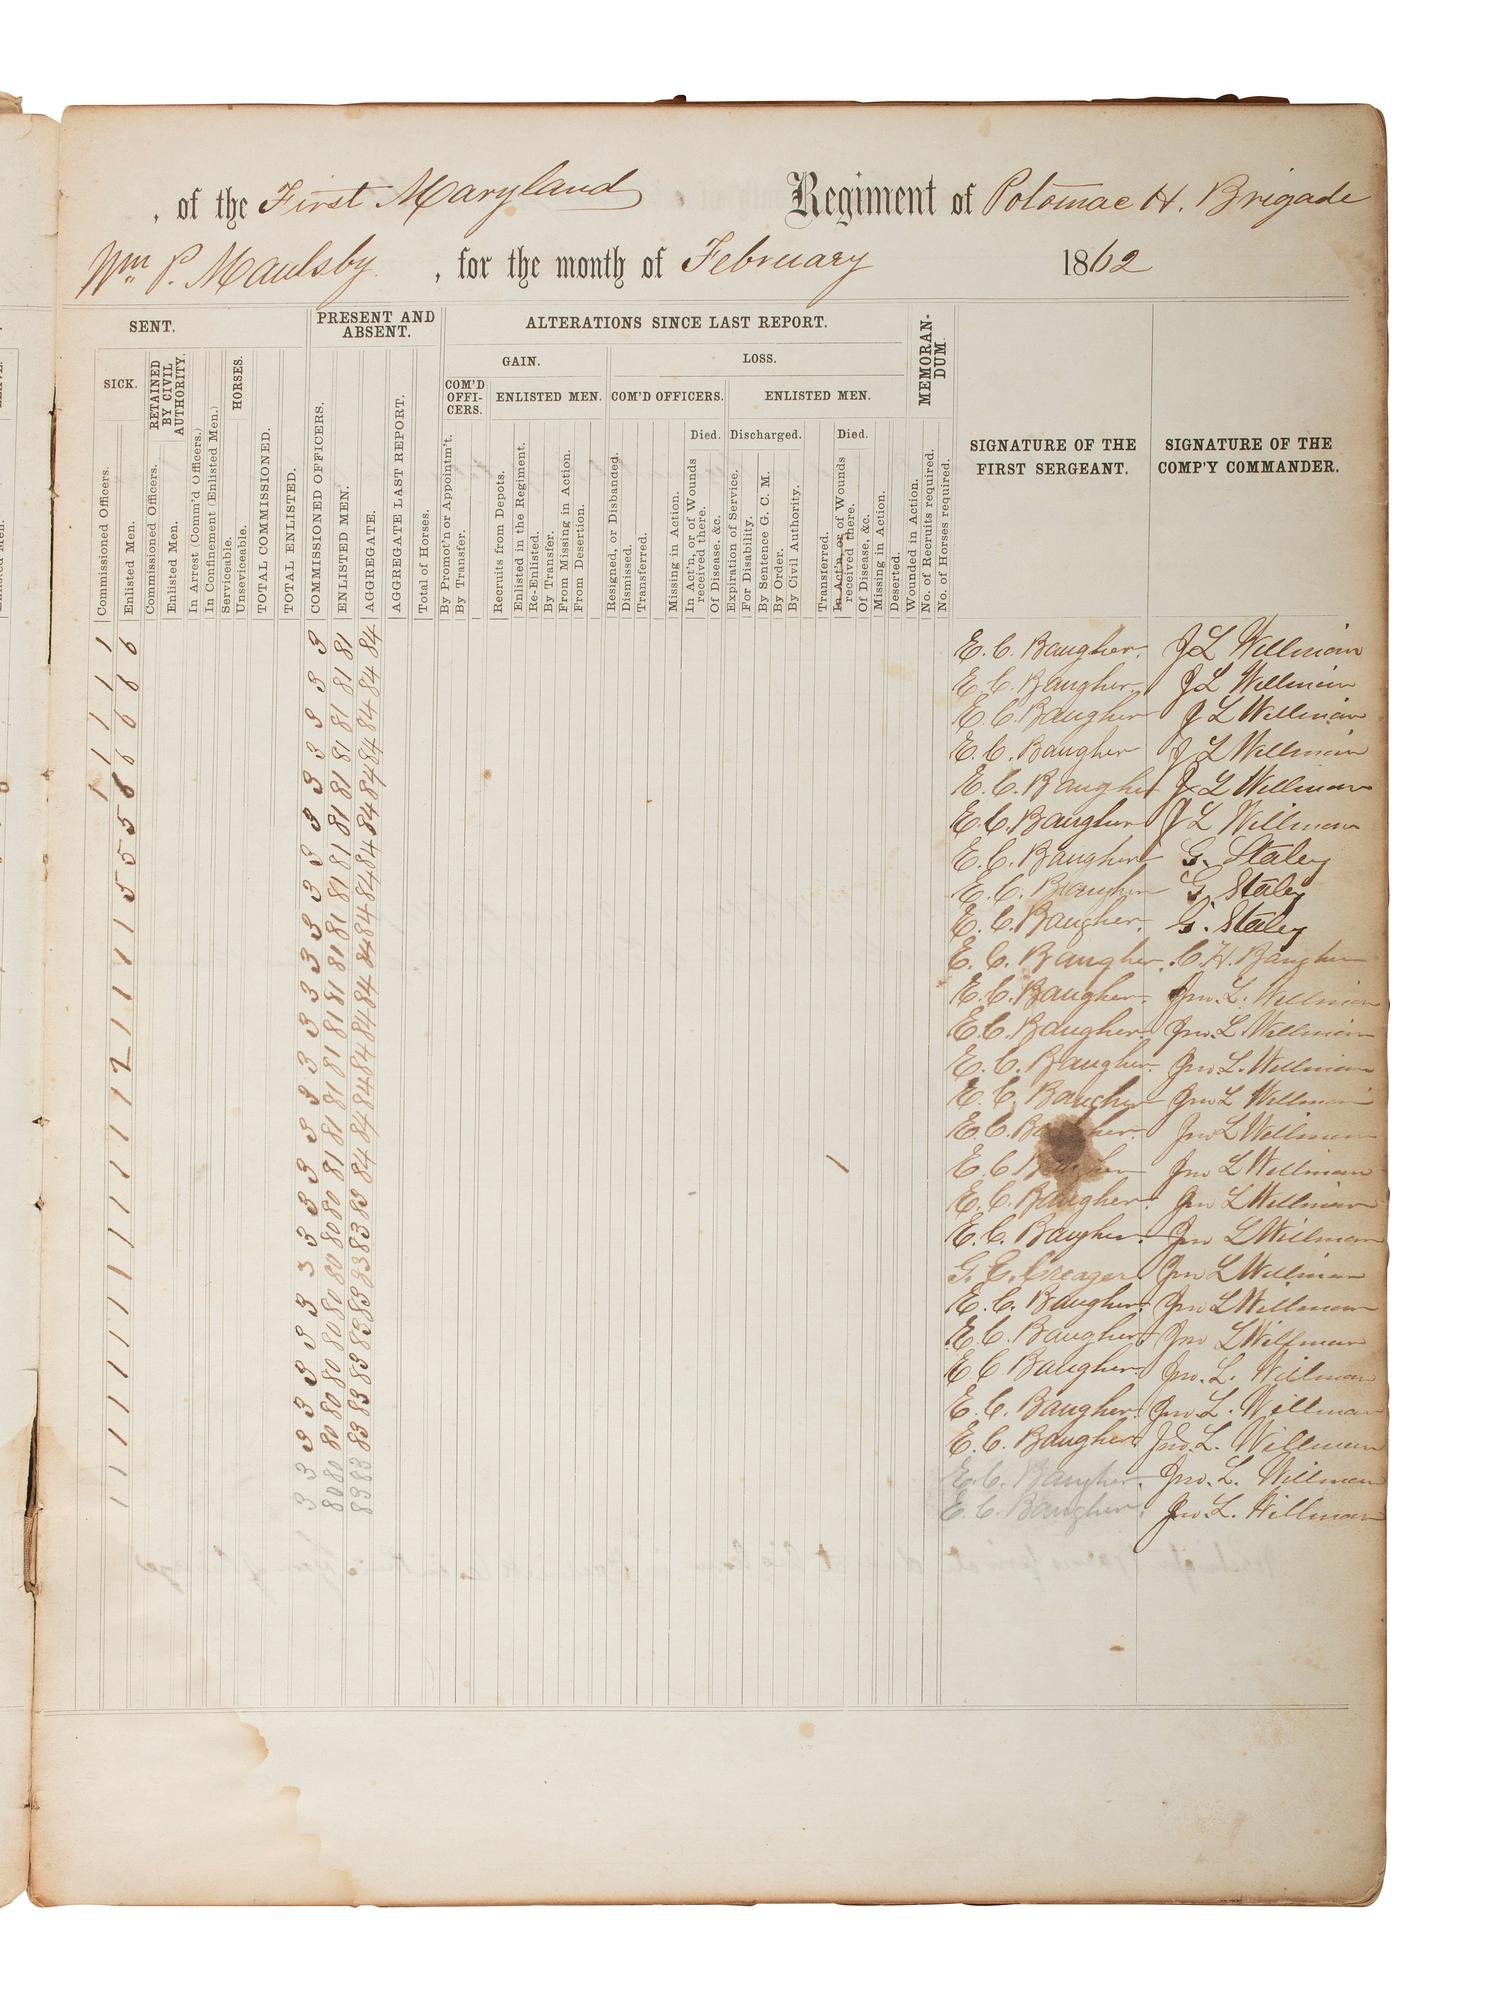 , of the First Maryland Regiment of Potomac H. Brigade
Wm P. Maulsby , for the month of February 1862
SENT.
PRESENT AND ABSENT.
ALTERATIONS SINCE LAST REPORT.
MEMORAN-DUM.
SIGNATURE OF THE FIRST SERGEANT.
SIGNATURE OF THE COMP'Y COMMANDER.
SICK.
RETAINED BY CIVIL AUTHORITY.
HORSES.
GAIN.
LOSS.
COM'D OFFI-CERS.
ENLISTED MEN.
COM'D OFFICERS.
ENLISTED MEN.
Died.
Discharged.
Died.
Commissioned Officers.
Enlisted Men.
Commissioned Officers.
Enlisted Men.
In Arrest (Comm'd Officers.)
In Confinement (Enlisted Men.)
Serviceable.
Unseviceable.
TOTAL COMMISSIONED.
TOTAL ENLISTED.
COMMISSIONED OFFICERS.
ENLISTED MEN.
AGGREGATE.
AGGREGATE LAST REPORT.
Total of Horses.
By Promot'n or Appointm't.
By Transfer.
Recruits from Depots.
Enlisted in the Regiment.
Re-Enlisted.
By Transfer.
From Missing in Action.
From Desertion.
Resigned, or Disbanded.
Dismissed.
Transferred.
Missing in Action.
In Act'n, or of Wounds received there.
Of Disease, &c.
Expiration of Service.
For Disability.
By Sentence G. C. M.
By Order.
By Civil Authority.
Transferred.
In Act'n, or of Wounds received there.
Of Disease, &c.
Missing in Action.
Deserted.
Wounded in Action.
No. of Recruits required.
No. of Horses required.
1 6 3 81 84 E. C. Baugher. J L Willman
1 6 3 81 84 E. C. Baugher. J L Willman
1 6 3 81 84 E. C. Baugher J L Willman
1 6 3 81 84 E. C. Baugher J L Willman
1 6 3 81 84 E. C. Baugher J L Willman
5 3 81 84 E. C. Baugher J L Willman
5 3 81 84 E. C. Baugher G. Staley
5 3 81 84 E. C. Baugher G. Staley
1 3 81 84 E. C. Baugher. G. Staley
1 3 81 84 E. C. Baugher. C. H. Baugher
1 3 81 84 E. C. Baugher. Jno. L. Willman
1 3 81 84 E. C. Baugher. Jno. L. Willman
2 3 81 84 E. C. Baugher. Jno L. Willman
1 3 81 84 E. C. Baugher Jno L Willman
1 3 81 84 E. C. Baugher. Jno L Willman
1 3 81 84 1 E. C. Baugher Jno L Willman
1 3 80 83 E. C. Baugher. Jno L Willman
1 3 80 83 E. C. Baugher. Jno L Willman
1 3 80 83 G. E. Creager Jno L Willman
1 3 80 83 E. C. Baugher. Jno L Willman
1 3 80 83 E. C. Baugher. Jno L Willman
1 3 80 83 E C Baugher. Jno. L. Willman
1 3 80 83 E. C. Baugher. Jno L. Willman
1 3 80 83 E. C. Baugher. Jno. L. Willman
1 3 80 83 E. C. Baugher. Jno. L. Willman
1 3 80 83 E. C. Baugher. Jno. L. Willman